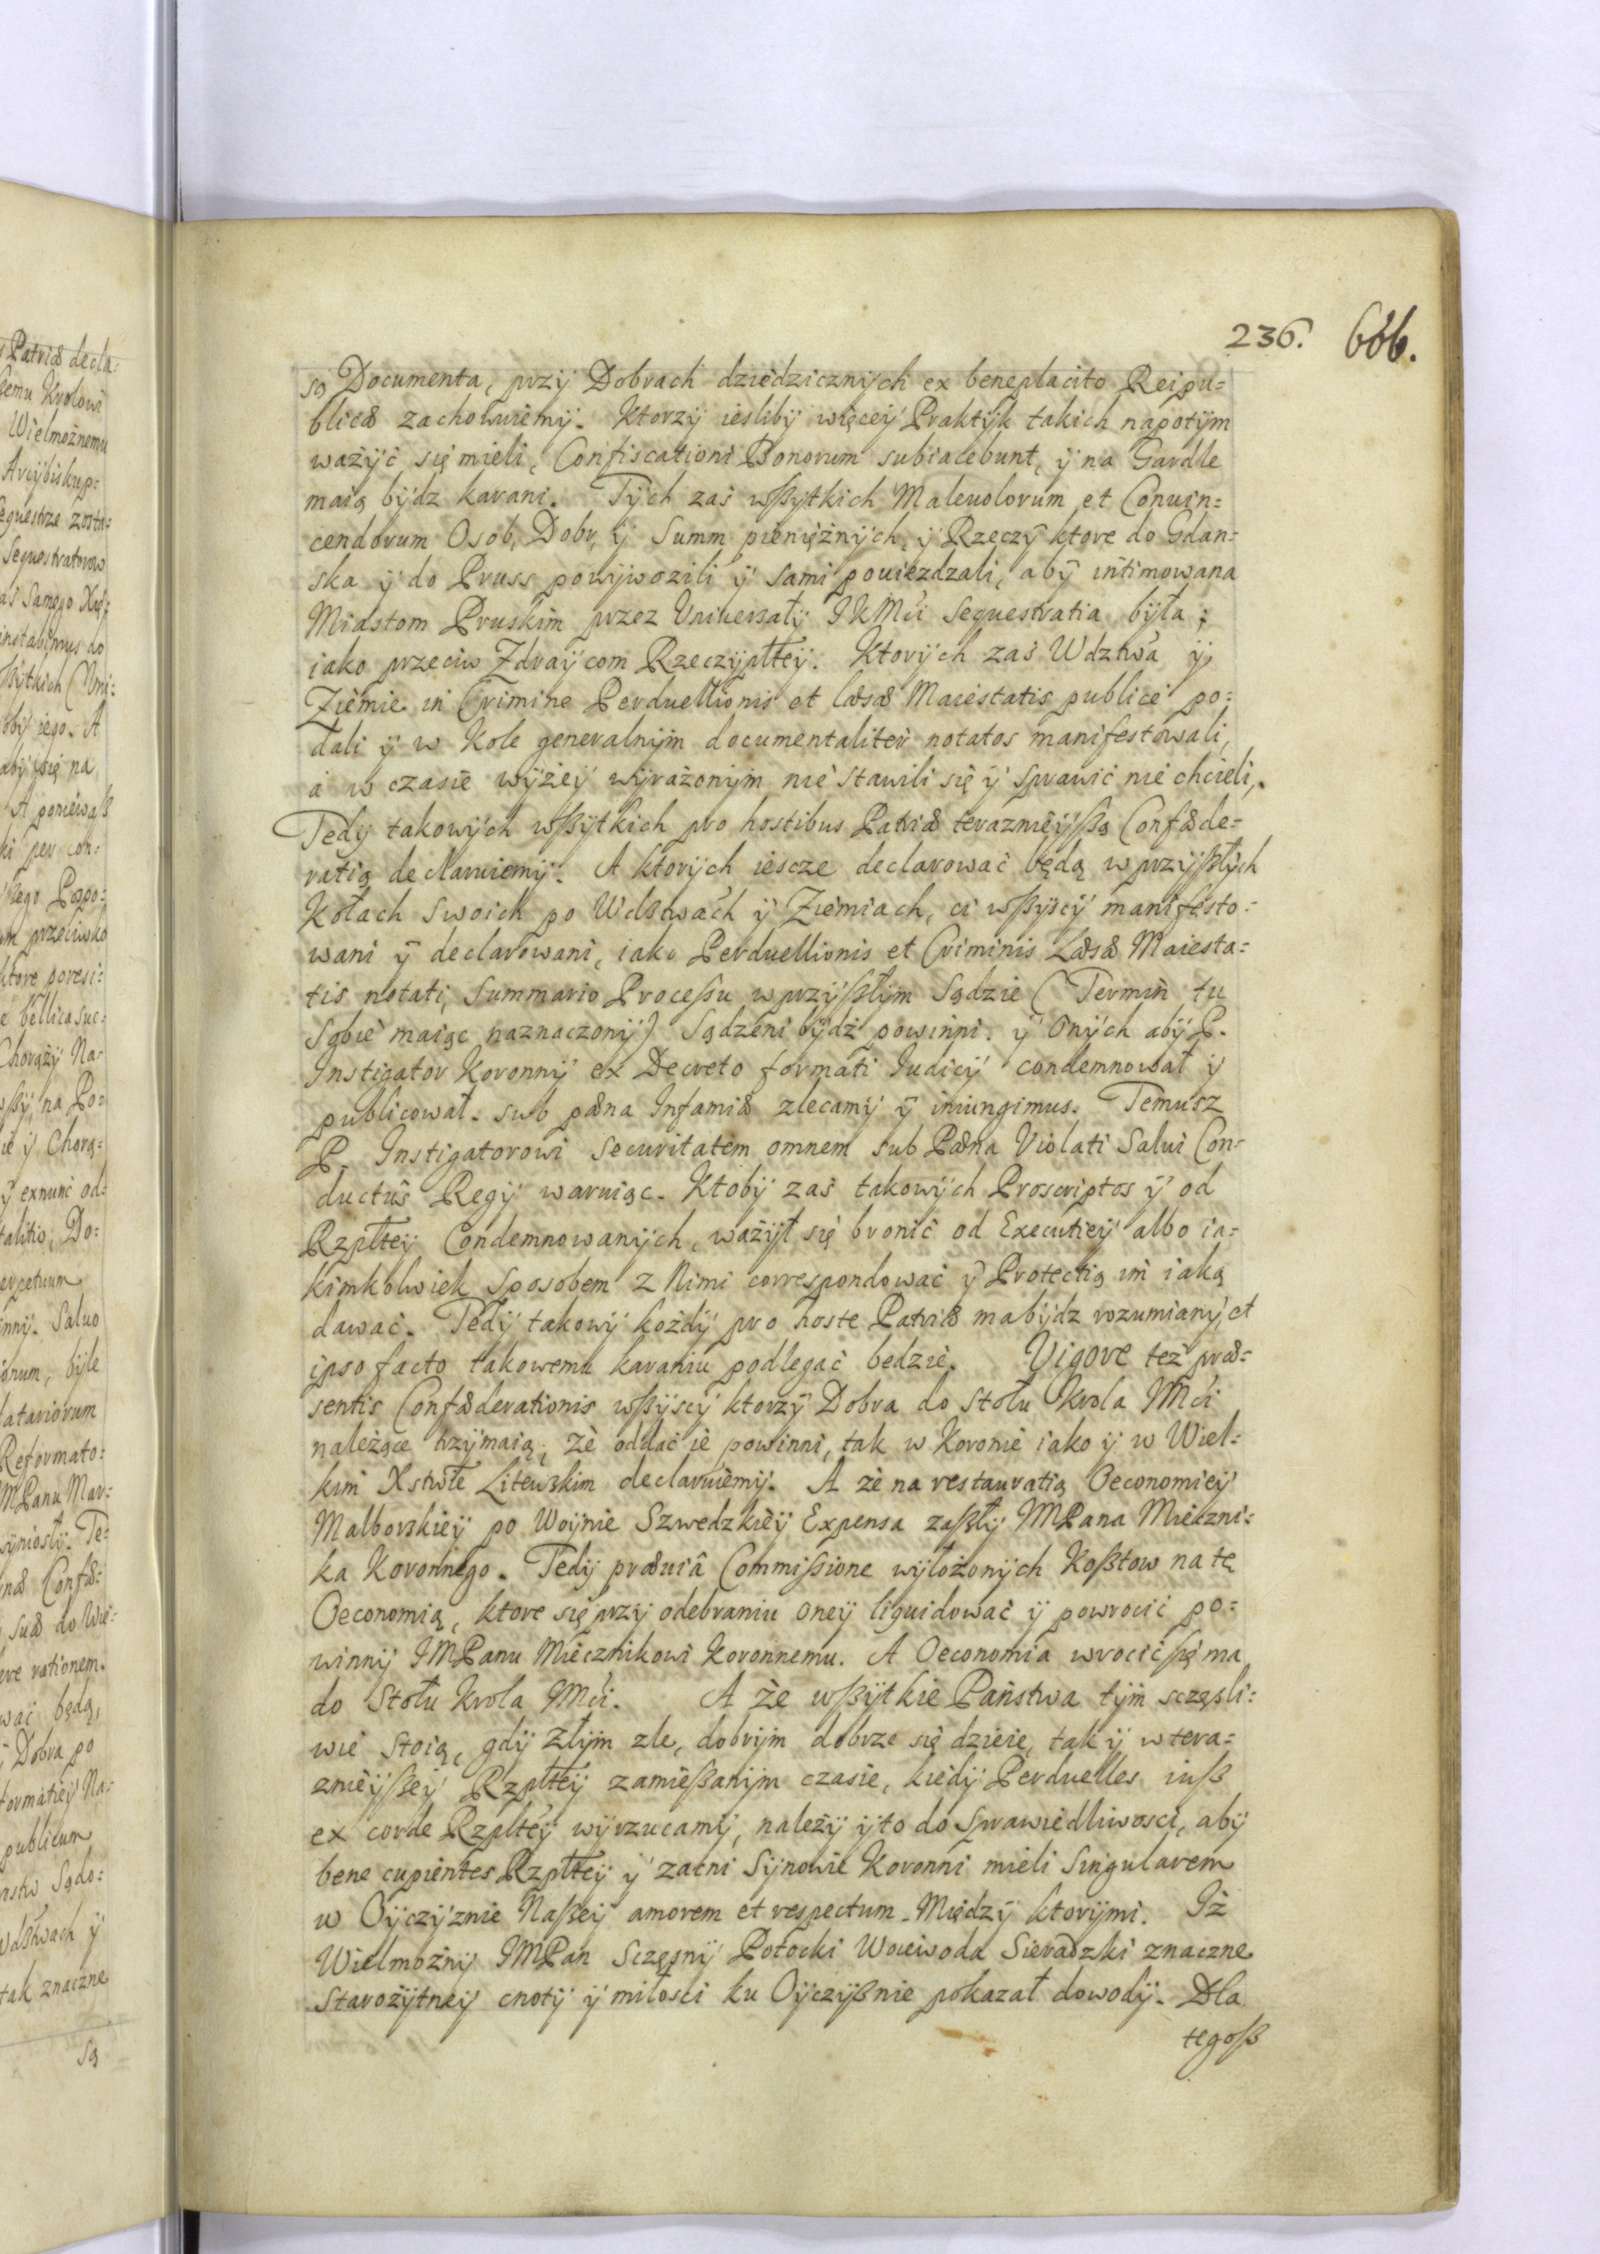 236. 666.
są Documenta, przÿ Dobrach dziedzicznÿch ex beneplacito Reipu=
blicæ zachowuiemÿ. Ktorzÿ iesliby więceÿ Praktÿk takich napotÿm
ważÿć się mieli, Confiscationi Bonorum subiacebunt, ÿ na Gardle
maią bÿdz karani. Tÿch zaś wßÿtkich Malevolorum et Convin=
cendorum Osob, Dobr, ÿ Summ pieniężnÿch, ÿ Rzeczÿ ktore do Gdan=
ska ÿ do Pruss powÿwozili ÿ sami powiezdzali, abÿ intimowana
Miastom Pruskim przez Vniversałÿ IKMći sequestratia bÿła;
iako przeciw Zdraÿcom Rzeczÿpłteÿ. Ktorÿch zaś Wdztwa ÿ
Ziemie in Crimine Perduellionis et læsæ Maiestatis publicè po=
dali ÿ w Kole generalnÿm documentaliter notatos manifestowali,
a w czasie wÿżeÿ wÿrażonÿm nie stawili się ÿ sprawić nie chcieli,
Tedÿ takowÿch wßÿtkich pro hostibus Patriæ terazniéÿßą Confæde=
ratią declaruiemÿ. A ktorÿch iescze declarować będą w przÿßłÿch
Kołach swoich po Wdztwach ÿ Ziemiach, ci wßÿscÿ manifesto=
wani ÿ declarowani, iako Perduellionis et Criminis Læsæ Maiesta=
tis notati, Summario Processu w przÿßłÿm Sądzie (Termin tu
sobie maiąc naznaczonÿ) Sądzeni bÿdź powinni. ÿ Onÿch abÿ P.
Instigator Koronnÿ ex Decreto formati Iudicÿ condemnował ÿ
publicował. sub pæna Infamiæ zlecamÿ ÿ iniungimus. Temusz
P. Instigatorowi securitatem omnem sub Pæna Violati Salui Con=
ductûs Regÿ waruiąc. Ktobÿ zaś takowÿch Proscriptos ÿ od
Rzpłteÿ Condemnowanÿch, ważÿł się bronić od Executieÿ albo ia=
kimkolwiek sposobem z Nimi correspondować ÿ Protectią im iaką
dawać. Tedÿ takowÿ każdÿ pro hoste Patriæ ma bÿdz rozumianÿ, et
ipso facto takowemu karaniu podlegać będzie. Vigore też præ=
sentis Confæderationis wßÿscÿ ktorzÿ Dobra do stołu Krola IMći
należące trzÿmaią, że oddać ie powinni, tak w Koronie iako ÿ w Wiel=
kim Xstwłe Litewskim declaruiemÿ. A że na restauratią Oeconomieÿ
Malborskieÿ po Woÿnie Szwedzkieÿ Expensa zaßłÿ IMPana Mieczni=
ka Koronnego. Tedÿ præuiâ Commissione wÿłożonÿch Koßtow na tę
Oeconomią, ktore się przÿ odebraniu oneÿ liquidować ÿ powrocić po=
winnÿ IMPanu Miecznikowi Koronnemu. A Oeconomia wrocić się ma
do Stołu Krola IMći. A że wßÿtkie Państwa tÿm sczęsli=
wie stoią, gdÿ złÿm zle, dobrÿm dobrze się dzieie, tak ÿ w tera=
znieÿßeÿ Rzpłteÿ zamießanÿm czasie, kiedÿ Perduelles iuß
ex corde Rzpłteÿ wÿrzucamÿ, należÿ ÿ to do sprawiedliwosci, abÿ
bene cupientes Rzpłteÿ ÿ zacni Sÿnowie Koronni mieli Singularem
w Oÿczÿznie Naßeÿ amorem et respectum. Międzÿ ktorÿmi. Iż
Wielmożnÿ IMPan Sczęsnÿ Potocki Woiewoda Sieradzki znaczne
starożÿtneÿ cnotÿ ÿ miłosci ku Oÿczÿßnie pokazał dowodÿ. Dla
tegoß